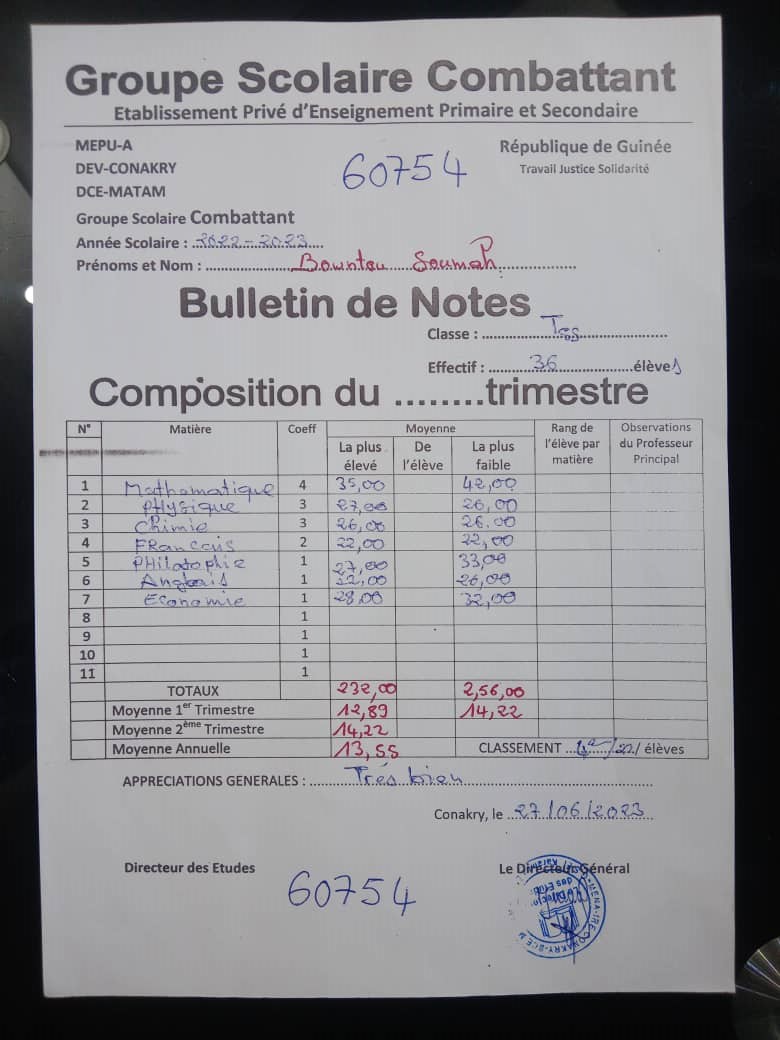 Groupe Scolaire Combattant
Etablissement Privé d'Enseignement Primaire et Secondaire
MEPU-A
DEV-CONAKRY
DCE-MATAM
60754
République de Guinée
Travail Justice Solidarité
Groupe Scolaire Combattant
Année Scolaire : ..2022-2023....
Prénoms et Nom : ..................Bountou....Soumah..............
Bulletin de Notes
Classe : ............Tss..................
Effectif : ........36....................élèves
Composition du ........trimestre
N° Matière Coeff Moyenne Rang de l'élève par matière Observations du Professeur Principal
La plus élevé De l'élève La plus faible
1 Mathematique 4 35,00 42,00
2 PHysique 3 27,00 26,00
3 Chimie 3 26,00 26.00
4 FRancais 2 22,00 22,00
5 PHilotophie 1 27,00 33,00
6 Anglais 1 22,00 26,00
7 Economie 1 28,00 32,00
8 1
9 1
10 1
11 1
TOTAUX 232,00 2,56,00
Moyenne 1er Trimestre 12,89 14,22
Moyenne 2ème Trimestre 14,22
Moyenne Annuelle 13,55 CLASSEMENT ... / élèves
APPRECIATIONS GENERALES : ........Très bien..............................
Conakry, le ..27/06/2023..
Directeur des Etudes
Le Directeur Général
60754